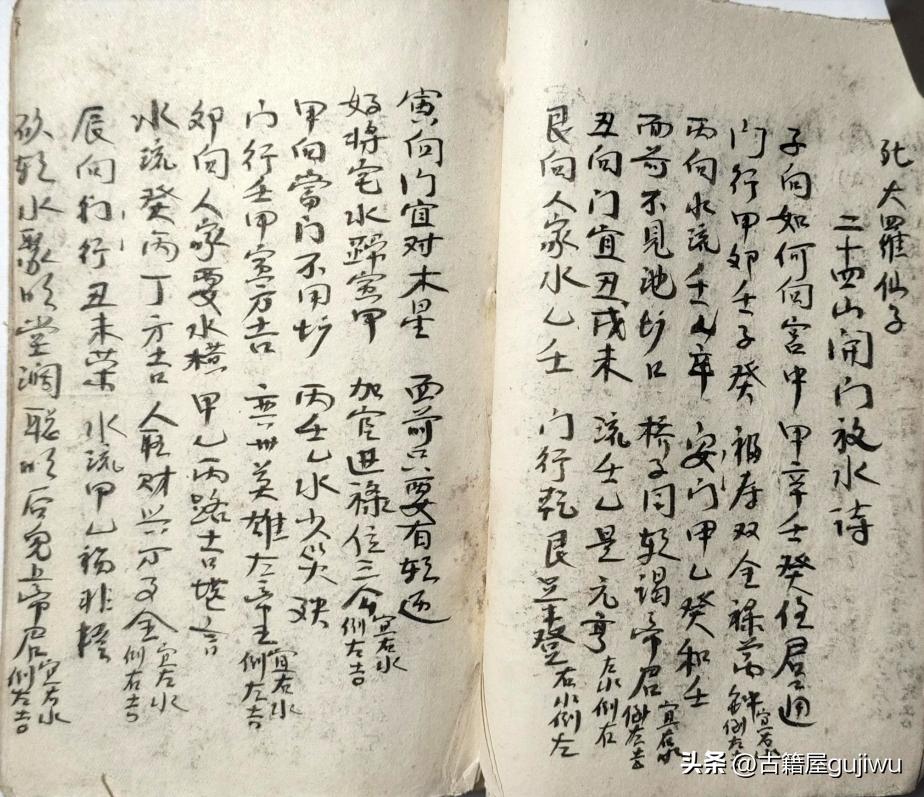 大羅仙子
二十四山開门放水诗
子向如何向宫中 甲辛壬癸任君通
门行甲卯壬子癸 福寿双全禄 宜右水倒左
丙向水流壬乙辛 安门甲乙癸和壬
面前不見池塘口 桥子同 朝謁帝君 宜右水倒左吉
丑向门宜丑戌未 流壬乙是元亨 左水倒右
艮向人家水乙壬 门行乾艮 右水倒左
寅向门宜对木星 面前只要有朝迎
好将宅水歸寅甲 加官進禄位三公 宜右水倒左吉
甲向當门不用塘 丙壬乙水少災殃
门行壬甲寅方吉 英雄 宜右水倒左吉
卯向人家要水横 甲乙丙路吉堪言
水流癸丙丁方吉 人旺财兴万事全 宜左水倒右吉
辰向门行丑未荣 水流甲乙福非轻
水聚明堂濶 聪明 帝君 宜右水倒左吉
头条 @古籍屋gujiwu